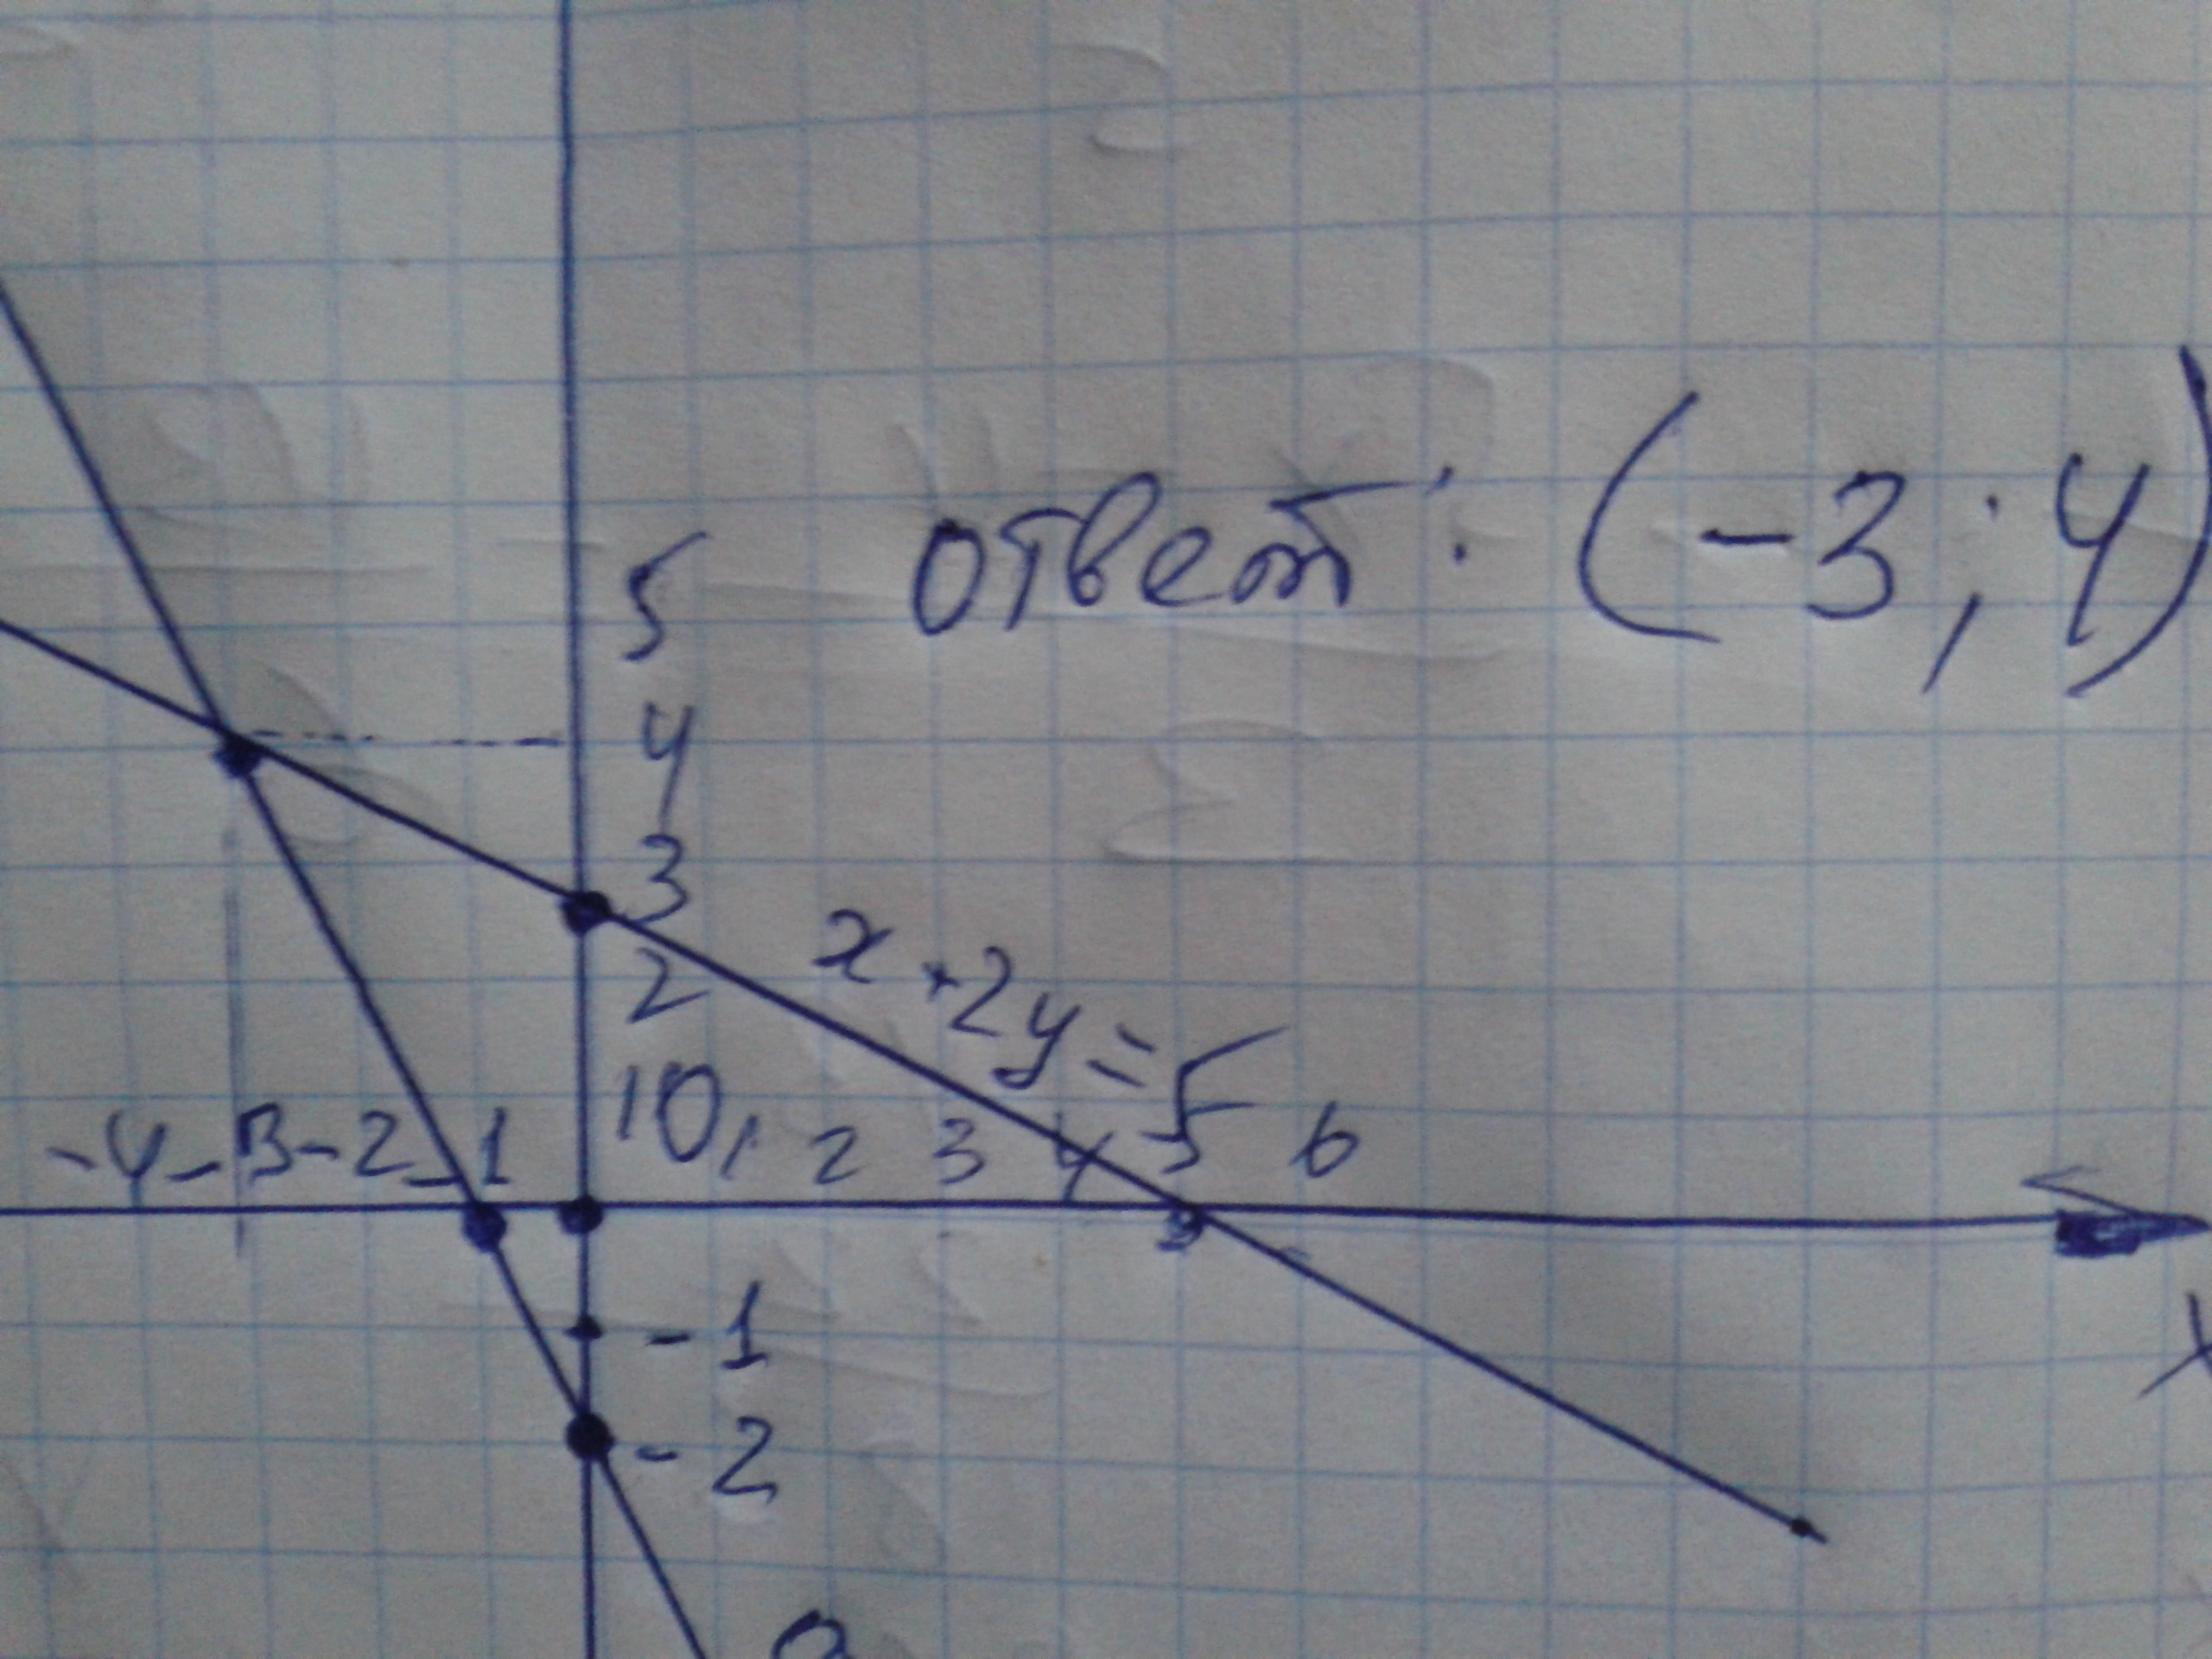 ответ: (-3; 4)
5
4
3
x+2y=5
2
10
-4 -3 -2 -1 1 2 3 4 5 6
-1
x
-2